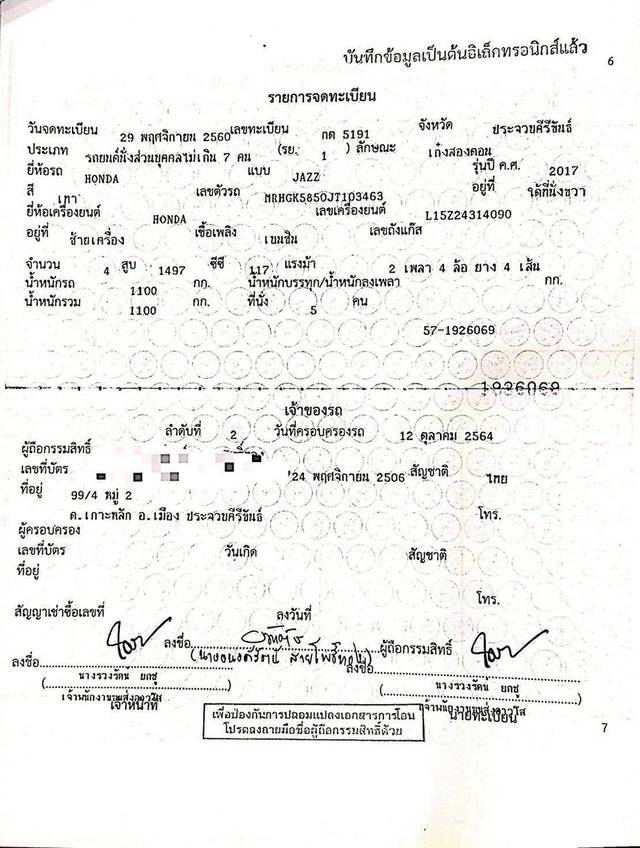 บันทึกข้อมูลเป็นต้นอิเล็กทรอนิกส์แล้ว
6
รายการจดทะเบียน
วันจดทะเบียน 29 พฤศจิกายน 2560 เลขทะเบียน กต 5191 จังหวัด ประจวบคีรีขันธ์
ประเภท รถยนต์นั่งส่วนบุคคลไม่เกิน 7 คน (รย. 1 ) ลักษณะ เก๋งสองตอน
ยี่ห้อรถ HONDA แบบ JAZZ รุ่นปี ค.ศ. 2017
สี เทา เลขตัวรถ MRHGK5850JT103463 อยู่ที่ ใต้ที่นั่งขวา
ยี่ห้อเครื่องยนต์ HONDA เลขเครื่องยนต์ L15Z24314090
อยู่ที่ ซ้ายเครื่อง เชื้อเพลิง เบนซิน เลขถังแก๊ส
จำนวน 4 สูบ 1497 ซีซี 117 แรงม้า 2 เพลา 4 ล้อ ยาง 4 เส้น
น้ำหนักรถ 1100 กก. น้ำหนักบรรทุก/น้ำหนักลงเพลา กก.
น้ำหนักรวม 1100 กก. ที่นั่ง 5 คน
57-1926069
1926069
เจ้าของรถ
ลำดับที่ 2 วันที่ครอบครองรถ 12 ตุลาคม 2564
ผู้ถือกรรมสิทธิ์
เลขที่บัตร 24 พฤศจิกายน 2506 สัญชาติ ไทย
ที่อยู่ 99/4 หมู่ 2
ต.เกาะหลัก อ.เมือง ประจวบคีรีขันธ์ โทร.
ผู้ครอบครอง
เลขที่บัตร วันเกิด สัญชาติ
ที่อยู่
โทร.
สัญญาเช่าซื้อเลขที่ ลงวันที่
ลงชื่อ ผู้ถือกรรมสิทธิ์
ลงชื่อ ลงชื่อ
เจ้าหน้าที่ นายทะเบียน
เพื่อป้องกันการปลอมแปลงเอกสารการโอน
โปรดลงลายมือชื่อผู้ถือกรรมสิทธิ์ด้วย
7